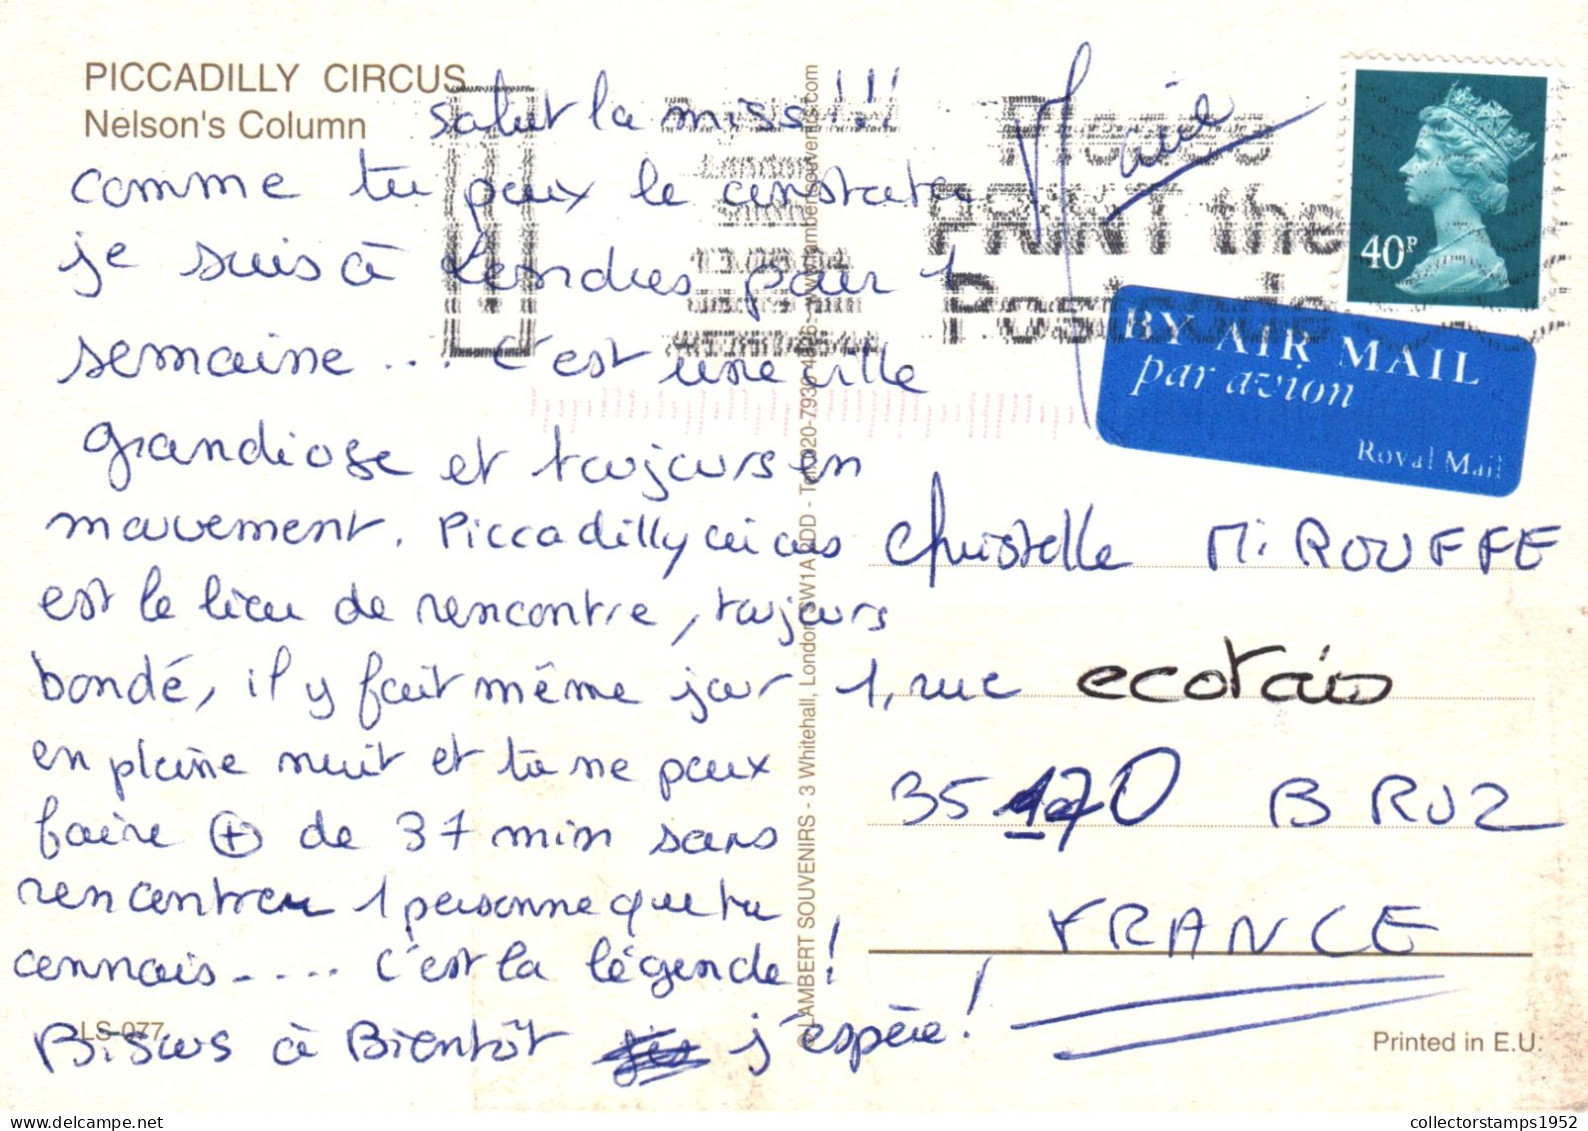 PICCADILLY CIRCUS
Nelson's Column
salut la miss!!!
comme tu peux le constater
je suis à Londres pour 1
semaine... c'est une ville
grandiose et toujours en
mouvement. Piccadilly circus
est le lieu de rencontre, toujours
bondé, il y fait même jour
en pleine nuit et tu ne peux
faire + de 37 min sans
rencontrer 1 personne que tu
connais.... c'est la légende!
Bisous à Bientôt j'espère!
Marie
LS-077
LAMBERT SOUVENIRS - 3 Whitehall, London SW1A 2DD - Tel: 020-7930 - www.lambertsouvenirs.com
London
Please
PRINT the
Postcode
40P
BY AIR MAIL
par avion
Royal Mail
Christelle MiROUFFE
1, rue ecotais
35170 BRUZ
FRANCE
Printed in E.U.
collectorstamps1952